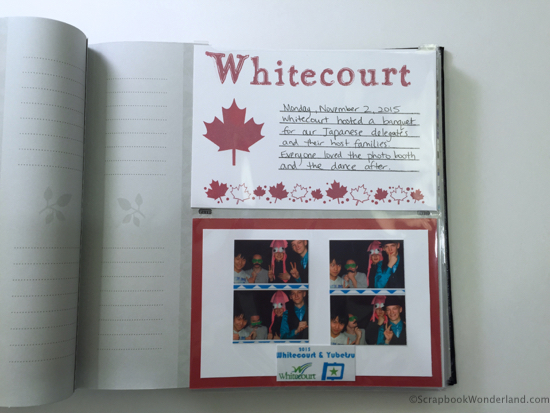 Whitecourt
Monday, November 2, 2015
Whitecourt hosted a banquet
for our Japanese delegates
and their host families.
Everyone loved the photo booth
and the dance after.
2015
Whitecourt & Yubetsu
Whitecourt
©ScrapbookWonderland.com